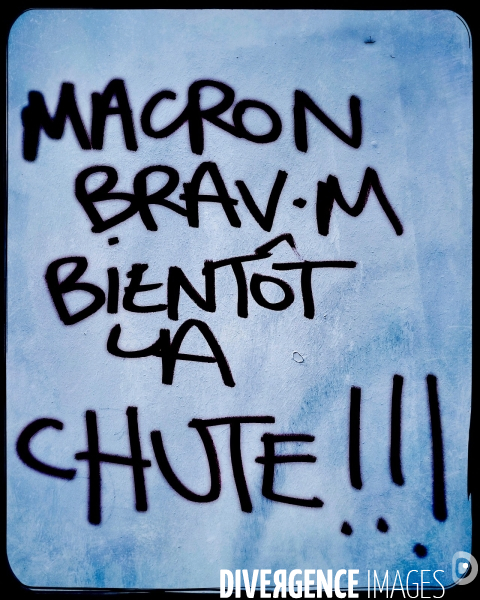 MACRON
BRAV·M
BIENTÔT
LA
CHUTE!!!
DIVERGENCE IMAGES